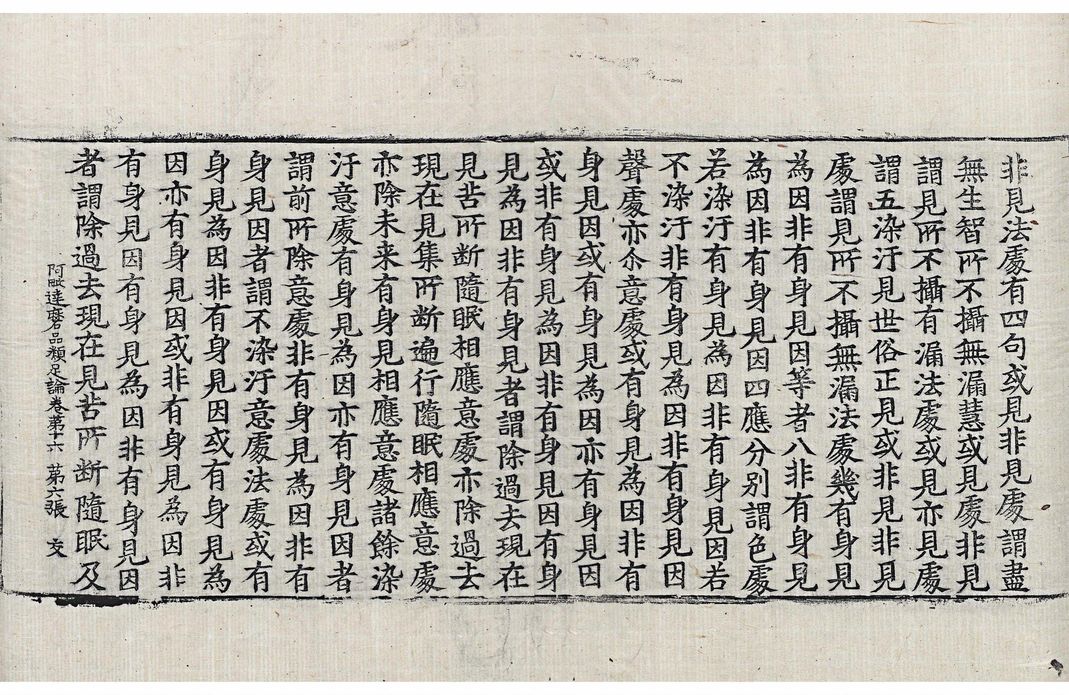 非見法處有四句或見非見處謂盡
無生智所不攝無漏慧或見處非見
謂見所不攝有漏法處或見亦見處
謂五染汙見世俗正見或非見非見
處謂見所不攝無漏法處幾有身見
為因非有身見因等者八非有身見
為因非有身見因四應分別謂色處
若染汙有身見為因非有身見因若
不染汙非有身見為因非有身見因
聲處亦尒意處或有身見為因非有
身見因或有身見為因亦有身見因
或非有身見為因非有身見因有身
見為因非有身見者謂除過去現在
見苦所斷隨眠相應意處亦除過去
現在見集所斷遍行隨眠相應意處
亦除未来有身見相應意處諸餘染
汙意處有身見為因亦有身見因者
謂前所除意處非有身見為因非有
身見因者謂不染汙意處法處或有
身見為因非有身見因或有身見為
因亦有身見因或非有身見為因非
有身見因有身見為因非有身見因
者謂除過去現在見苦所斷隨眠及
阿毗達磨品類足論卷第十六 第六張 交